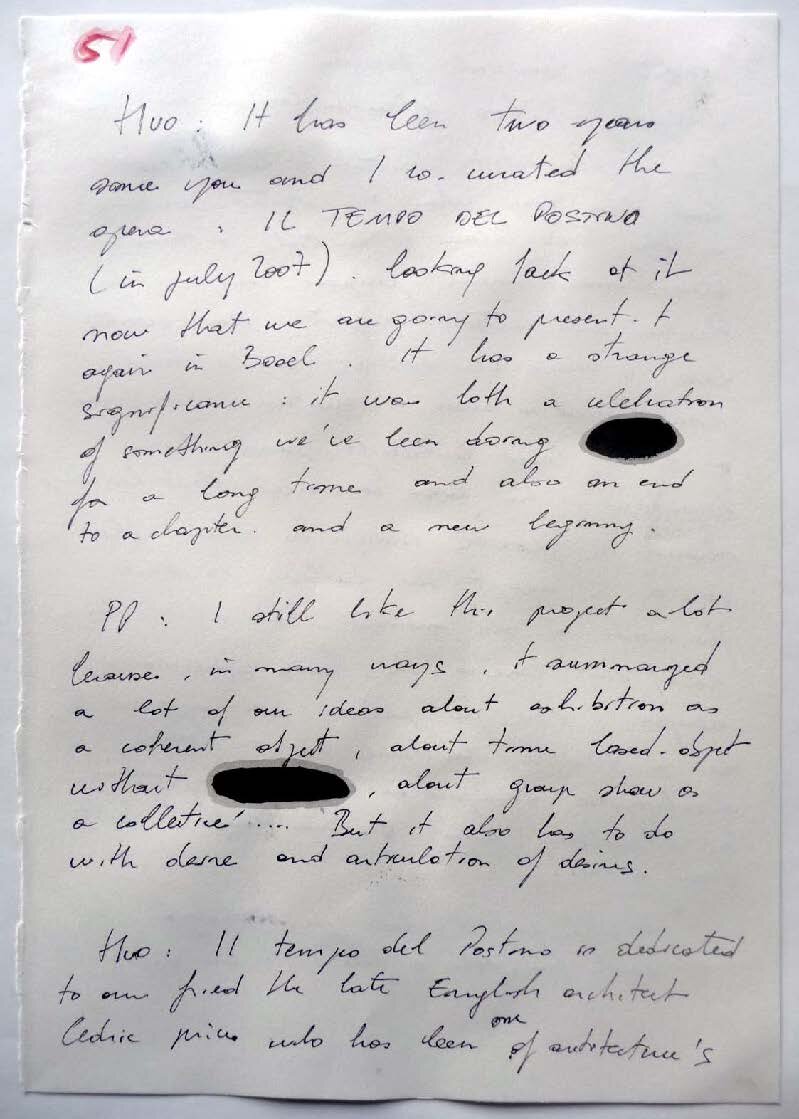 51
Huo : It has been two years
since you and I co-curated the
opera : IL TEMPO DEL POSTINO
(in july 2007). looking back at it
now that we are going to present it
again in Basel. It has a strange
significance : it was both a celebration
of something we've been doing
for a long time and also an end
to a chapter. and a new beginning.
PP : I still like this project a lot
because, in many ways, it summarized
a lot of our ideas about exhibition as
a coherent object, about time based-object
without , about group show as
a collective' .... But it also has to do
with desire and articulation of desires.
Huo : Il tempo del Postino is dedicated
to our fried the late Eenglish architect
Cedric price who has been one of